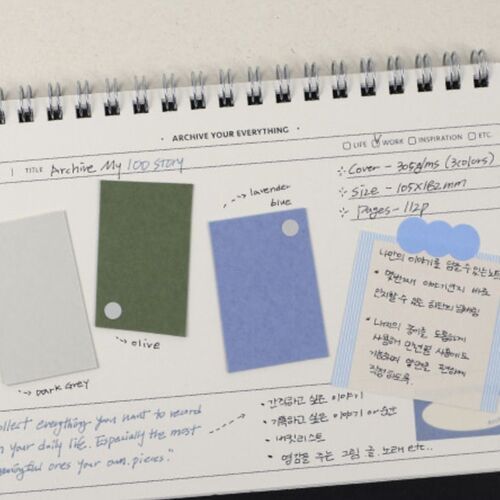 · ARCHIVE YOUR EVERYTHING ·
LIFE WORK INSPIRATION ETC
1 TITLE Archive My 100 Story
Cover - 305g/ms (3colors)
Size - 105x182mm
Pages - 112p
lavender
blue
olive
Dark Grey
나만의 이야기를 담을 수 있는 노트
• 몇번째 이야기인지 바로
인지할 수 있는 하단의 넘버링
• 내지의 종이를 도톰하게
사용해 만년필 사용에도
직접하도록
collect everything you want to record
in your daily life. Especially the most
meaningful ones your own pieces."
• 간직하고 싶은 이야기
• 기록하고 싶은 이야기 or 순간
• 버킷리스트
• 영감을 주는 그림 글, 노래 etc..